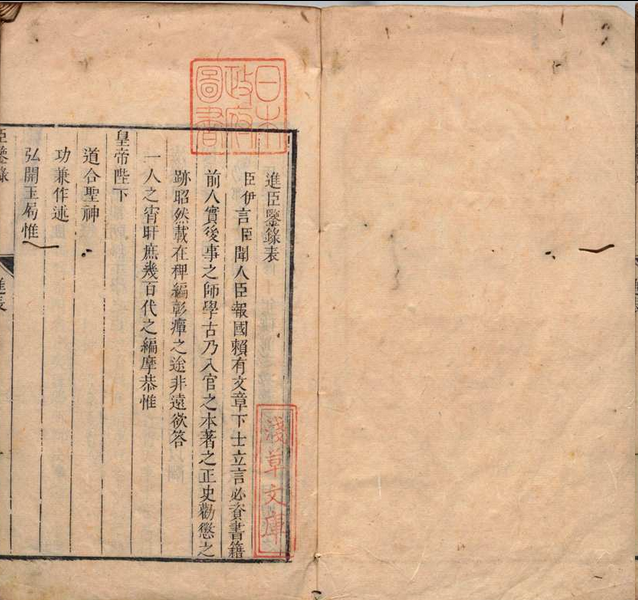 日本
政府
圖書
進臣鑒錄表
臣伊言臣聞人臣報國賴有文章下士立言必資書籍
前人實後事之師學古乃入官之本著之正史勸懲之
跡昭然載在稗編彰癉之途非遠欲答
一人之宵旰庶幾百代之編摩恭惟
皇帝陛下
道合聖神
功兼作述
弘開王局惟
臣鑒錄
進表
淺草文庫